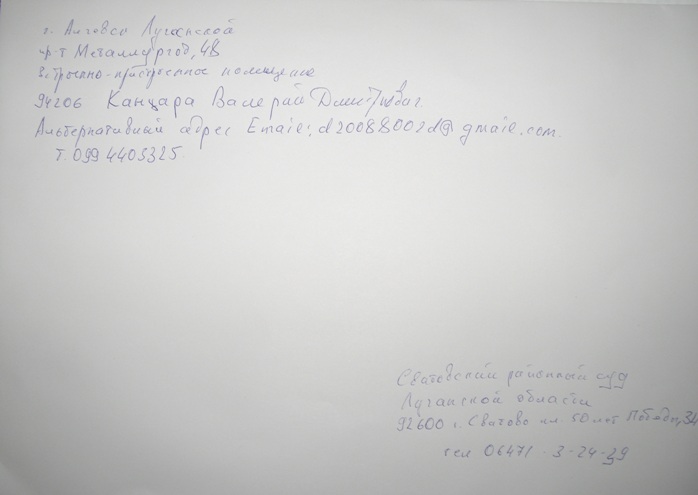 г. Алчевск Луганской
пр-т Металлургов, 48
Встроенно-пристроенное помещение
94206 Канцара Валерий
Альтернативный адрес Email: d20088002d@gmail.com.
т. 099 4403325
Сватовский районный суд
Луганской области
92600 г. Сватово пл. 50 лет Победы, 34
тел 06471 - 3-24-39